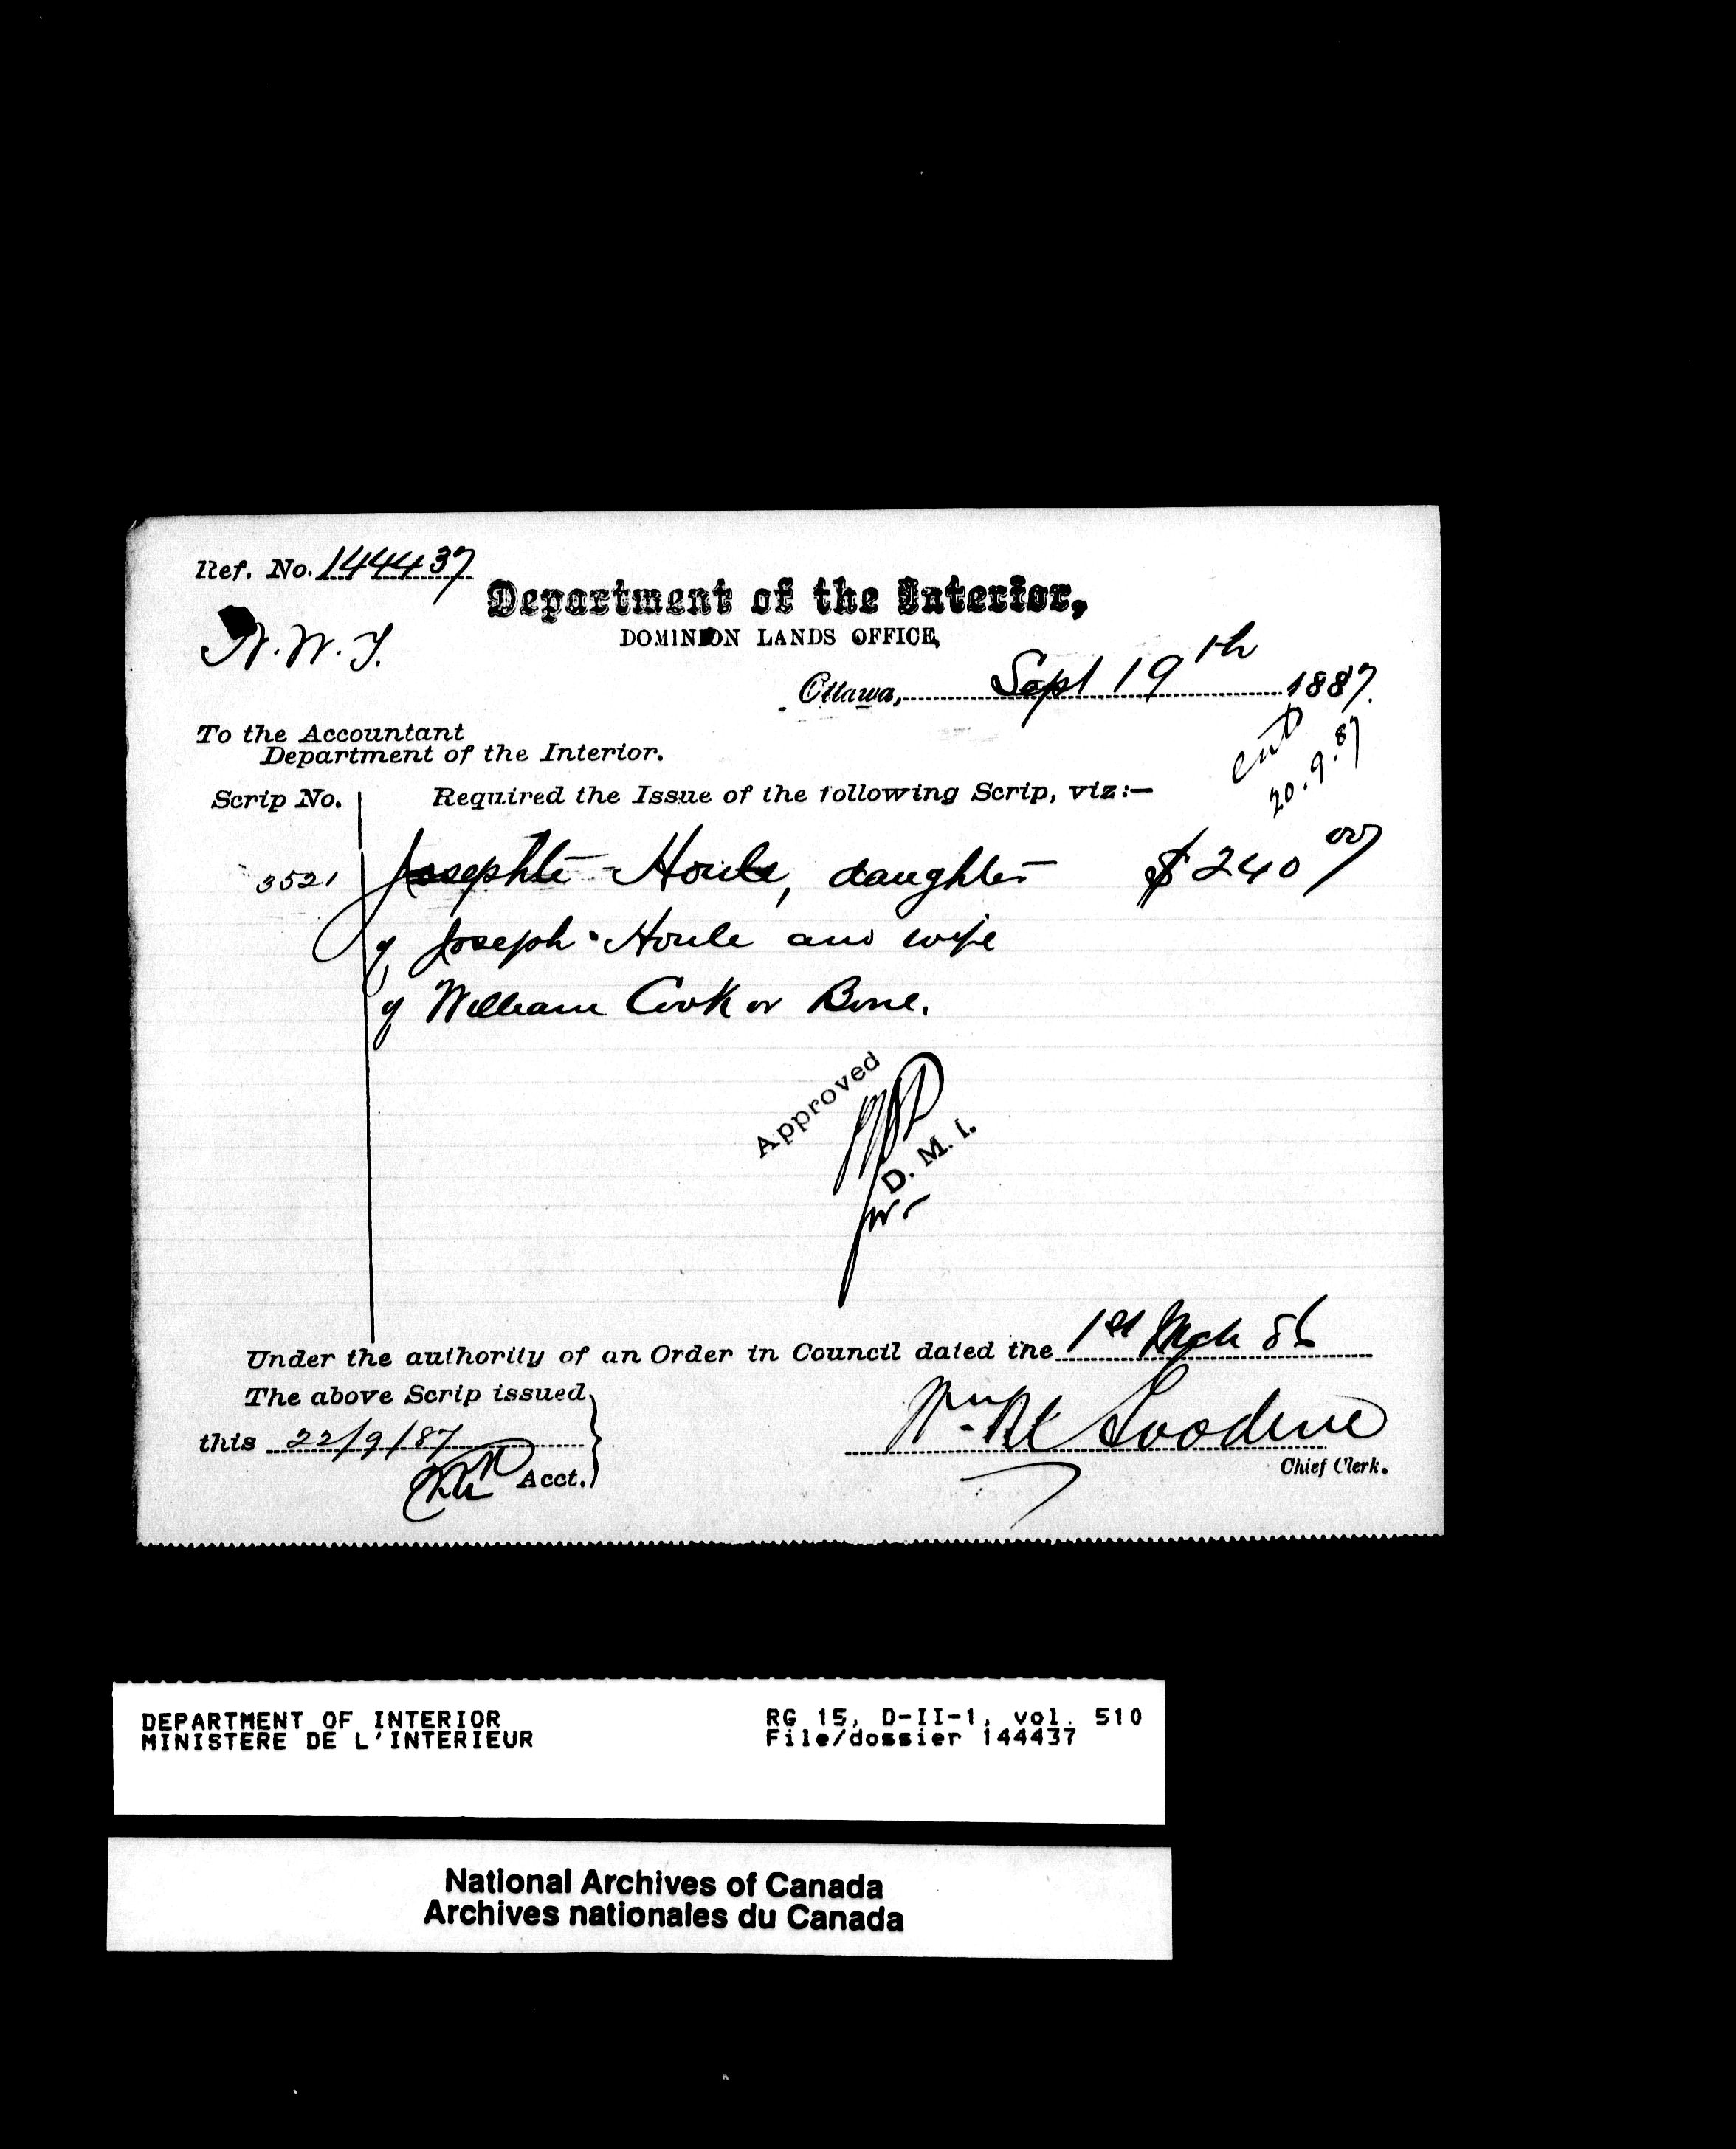 Ref. No. 144437
N.W.T.
Department of the Interior,
DOMINION LANDS OFFICE,
Ottawa, Sept 19th 1887.
To the Accountant
Department of the Interior.
20.9.87
Scrip No. Required the Issue of the following Scrip, viz:—
3521 Josephte Houle, daughter $240 00
of Joseph Houle and wife
of William Cook or Bone.
Approved
D. M. I.
for
Under the authority of an Order in Council dated the 1st Mch 86
The above Scrip issued
this 22/9/87
Acct.
Wm M Goodeve
Chief Clerk.
DEPARTMENT OF INTERIOR RG 15, D-II-1, vol. 510
MINISTERE DE L'INTERIEUR File/dossier 144437
National Archives of Canada
Archives nationales du Canada